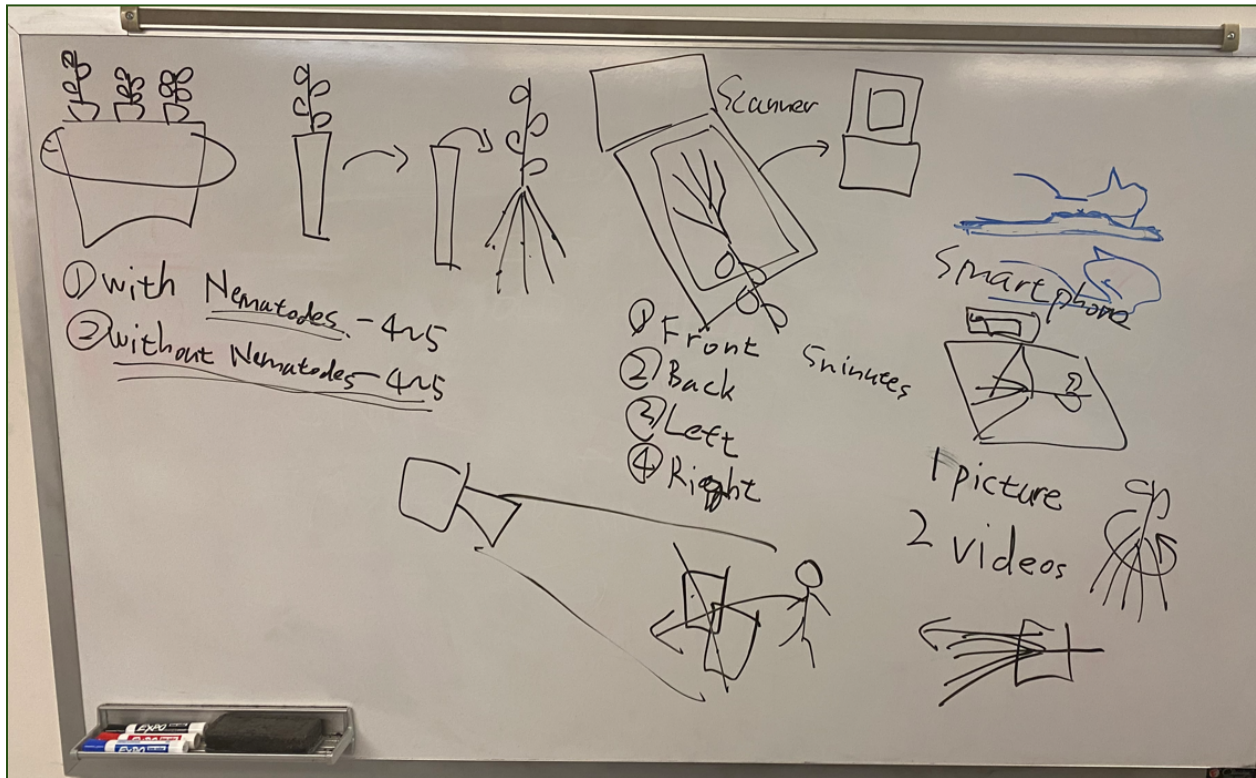 ① with Nematodes - 4~5
② without Nematodes - 4~5
Scanner
① Front
② Back
③ Left
④ Right
5ninutes
Smartphone
1 picture
2 videos
EXPO
EXPO
EXPO